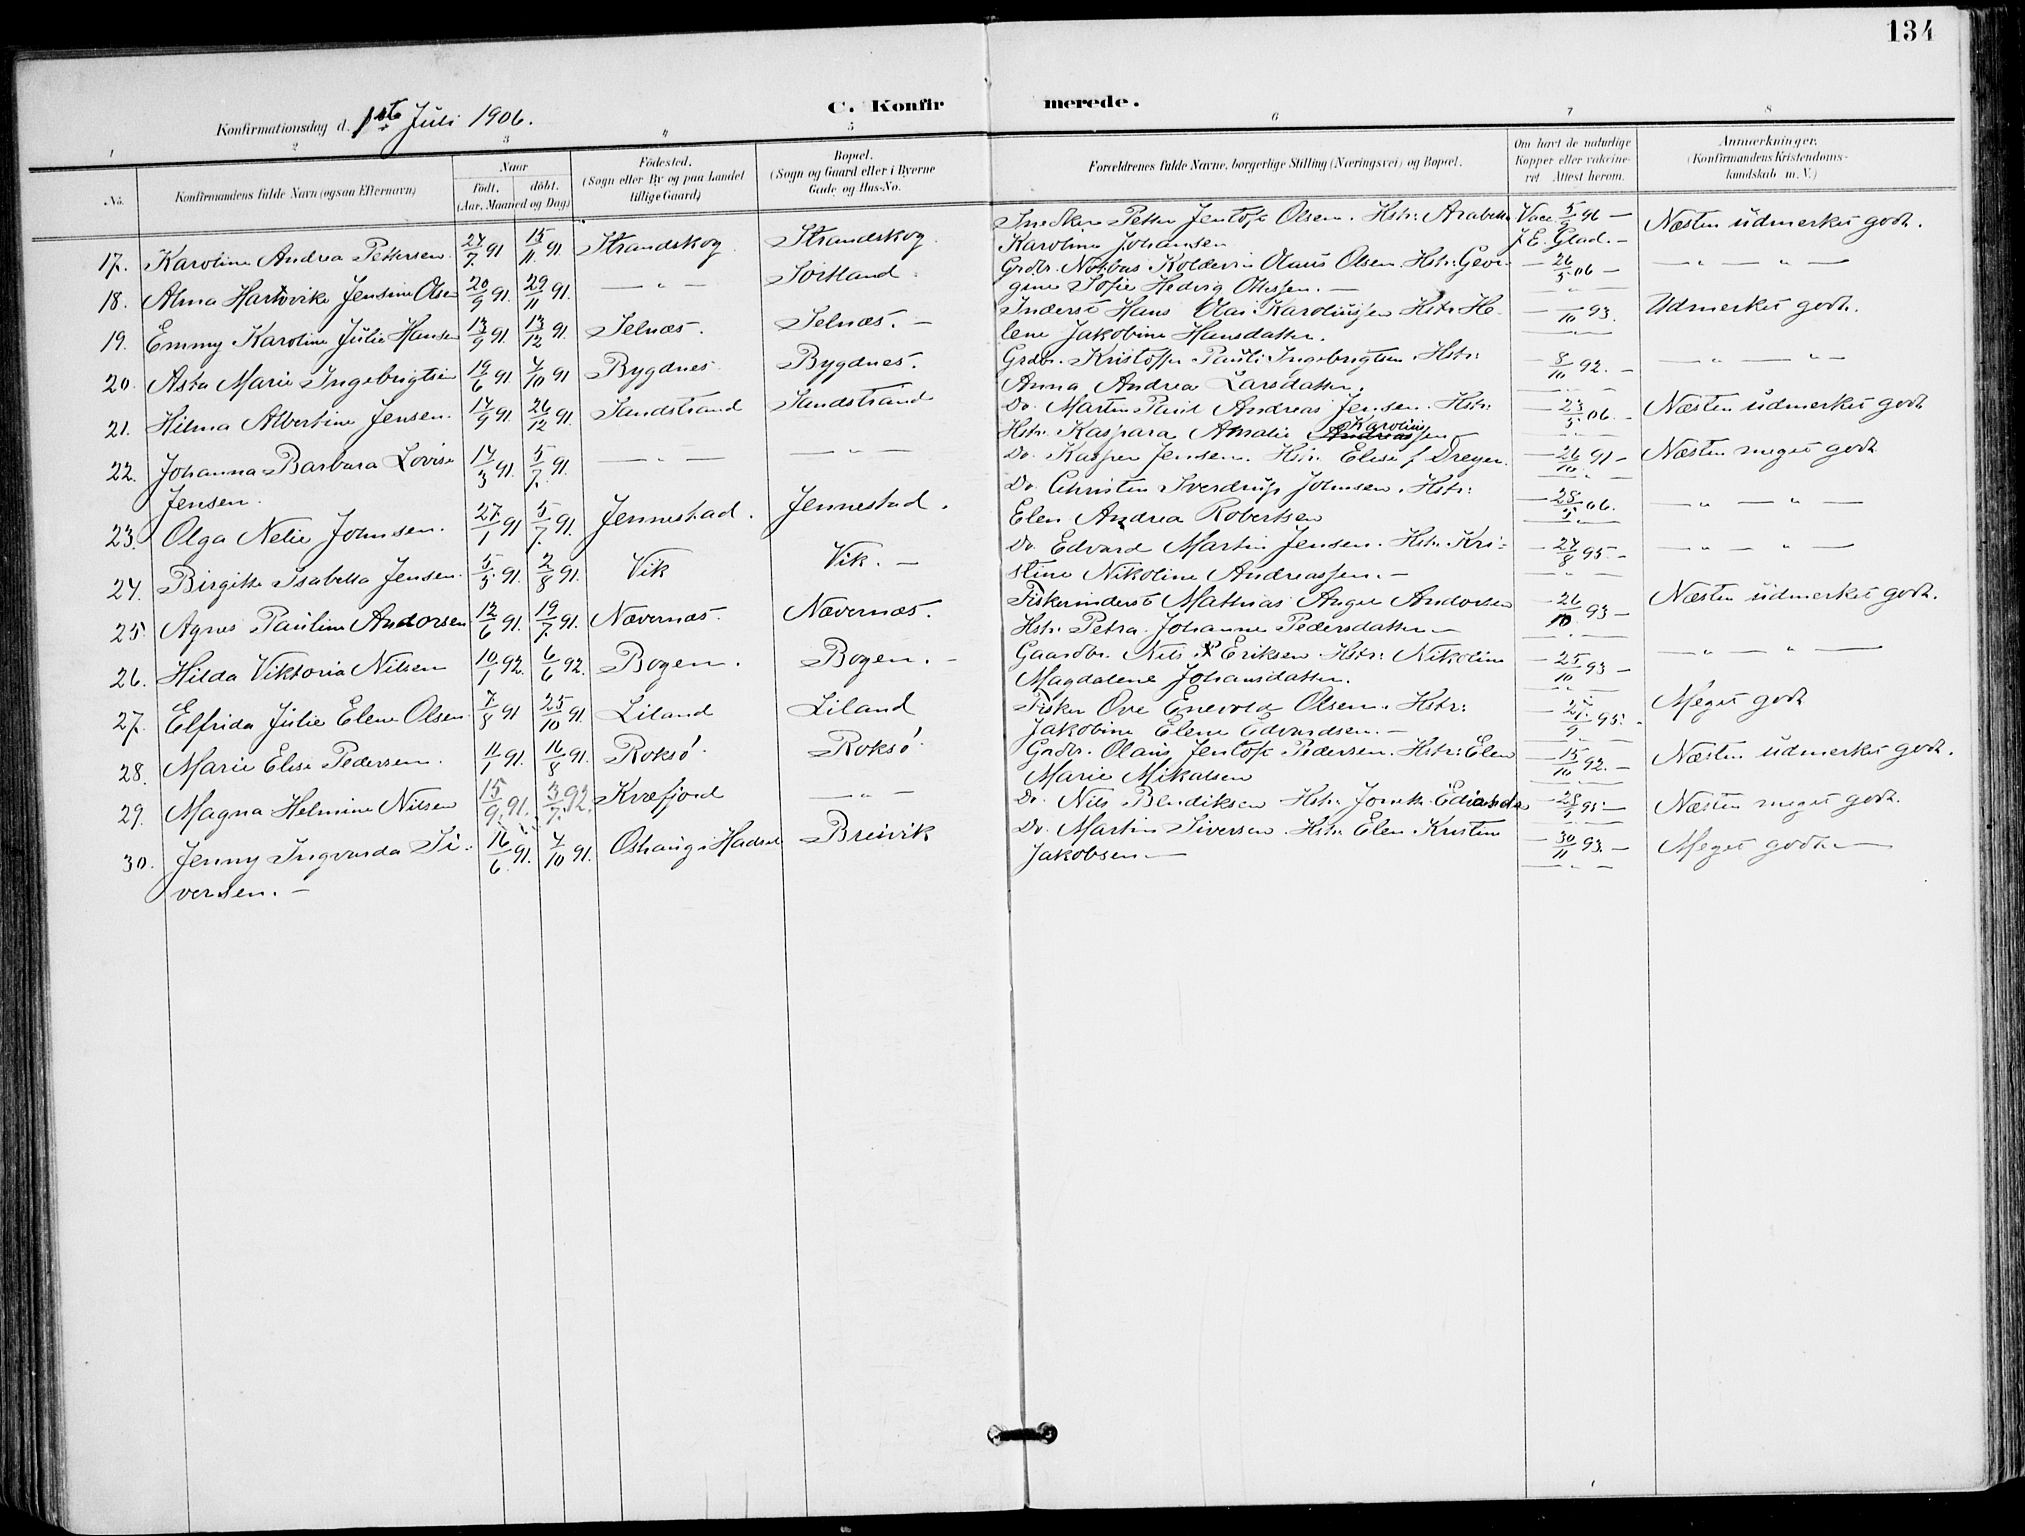 134
C. Konfirmerede.
Konfirmationsdag d. 1ste Juli 1906.
1 2 3 4 5 6 7 8
No. Konfirmandens fulde Navn (ogsaa Efternavn) Naar Födt. döbt. (Aar, Maaned og Dag) Födested. (Sogn eller By og paa Landet tillige Gaard) Bopæl. (Sogn og Gaard eller i Byerne Gade og Hus-No. Forældrenes fulde Navne, borgerlige Stilling (Næringsvei) og Bopæl. Om havt de naturlige Kopper eller vakcineret. Attest herom. Anmærkninger. (Konfirmandens Kristendomskundskab m. V.)
17. Karoline Andrea Pettersen 24/7 91 15/11 91. Strandskog Strandskog. Snedker Petter Jentoft Olsen. Hstr: Arabella Vacc. 5/9 96 — Næsten udmerket godt.
Karoline Johansen J. E. Glad. —
18. Alma Hartvikke Jensine Olsen 20/9 91. 29/11 91. — " — Sortland. Grdbr. Notbas Koldevin Olaus Olsen. Hstr: Geor- — 26/5 06 — — " — " —
gine Sofie Hedvig Olissen. — — " —
19. Emmy Karoline Julie Hansen 13/9 91. 13/12 91. Selnæs. Selnæs. — Inderst Hans Olai Karoliussen Hstr: He- — /10 93. Udmerket godt.
lene Jakobine Hansdatter. — " —
20. Asta Marie Ingebrigtsen 19/6 91 4/10 91 Bygdnes Bygdnes. Grdbr. Kristoffer Pauli Ingebrigtsen. Hstr: — 8/10 92. — — " — " —
Anna Andrea Larsdatter. — " —
21. Hilma Albertine Jensen. 17/9 91. 26/12 91. Sandstrand Sandstrand Do. Martin Paul Andreas Jensen. Hstr: — 23/5 06. — Næsten udmerket godt
Hstr. Kaspara Amalie Karolius Andreassen — " —
22. Johanna Barbara Lovise 17/3 91. 5/7. 91. — " — — " — Do. Kasper Jensen. Hstr: Elise f. Dreyer. — 26/10 91 — Næsten meget godt
Jensen. — " —
23. Olga Nelie Johnsen. 27/1 91 5/7. 91. Jennestad. Jennestad. Do. Christen Sverdrup Johnsen. Hstr: — 28/5 06. — " — " —
Elen Andrea Robertsen — " —
24. Birgitte Isabella Jensen. 5/5 91. 2/8 91. Vik Vik. — Do. Edvard Martin Jensen. Hstr. Kri- — 24/8 95 — — " — " —
stine Nikoline Andreassen. — — " —
25. Agnes Pauline Andorsen 12/6 91. 19/7. 91. Nævernæs. Nævernæs. Fiskerinderst Mathias Angel Andorsen — 26/10 93 — Næsten udmerket godt.
Hstr. Petra Johanne Pedersdatter — — " —
26. Hilda Viktoria Nilsen 10/1 92. 6/6 92. Bogen. Bogen. — Gaardbr. Nils P Eriksen Hstr: Nikoline — 25/10 93 — — " — " —
Magdalene Johansdatter. — " —
27. Elfrida Julie Elene Olsen 7/8 91 25/10 91. Liland Liland Fisker Ove Enevold Olsen. Hstr: — 27/9 95. — Meget godt
Jakobine Elene Edvardsen. — — " —
28. Marie Elise Pedersen. 11/1 91. 16/8 91. Roksö. Roksö. Grdbr. Olaus Jentoft Pedersen. Hstr: Elen — 15/10 92. — Næsten udmerket godt.
Marie Mikalsen — " —
29. Magna Helmine Nilsen 15/9. 91. 3/7. 92. Kvæfjord — " — Do. Nils Bendiksen Hstr: — Næsten meget godt.
30. Jenny Ingvarda Si- 16/6 91. 4/10 91. Oshaug i Hadsel Breivik Do. Martin Siversen. Hstr: Elen Kristine — 30/11 93. — Meget godt. —
versen. — Jakobsen — — " —